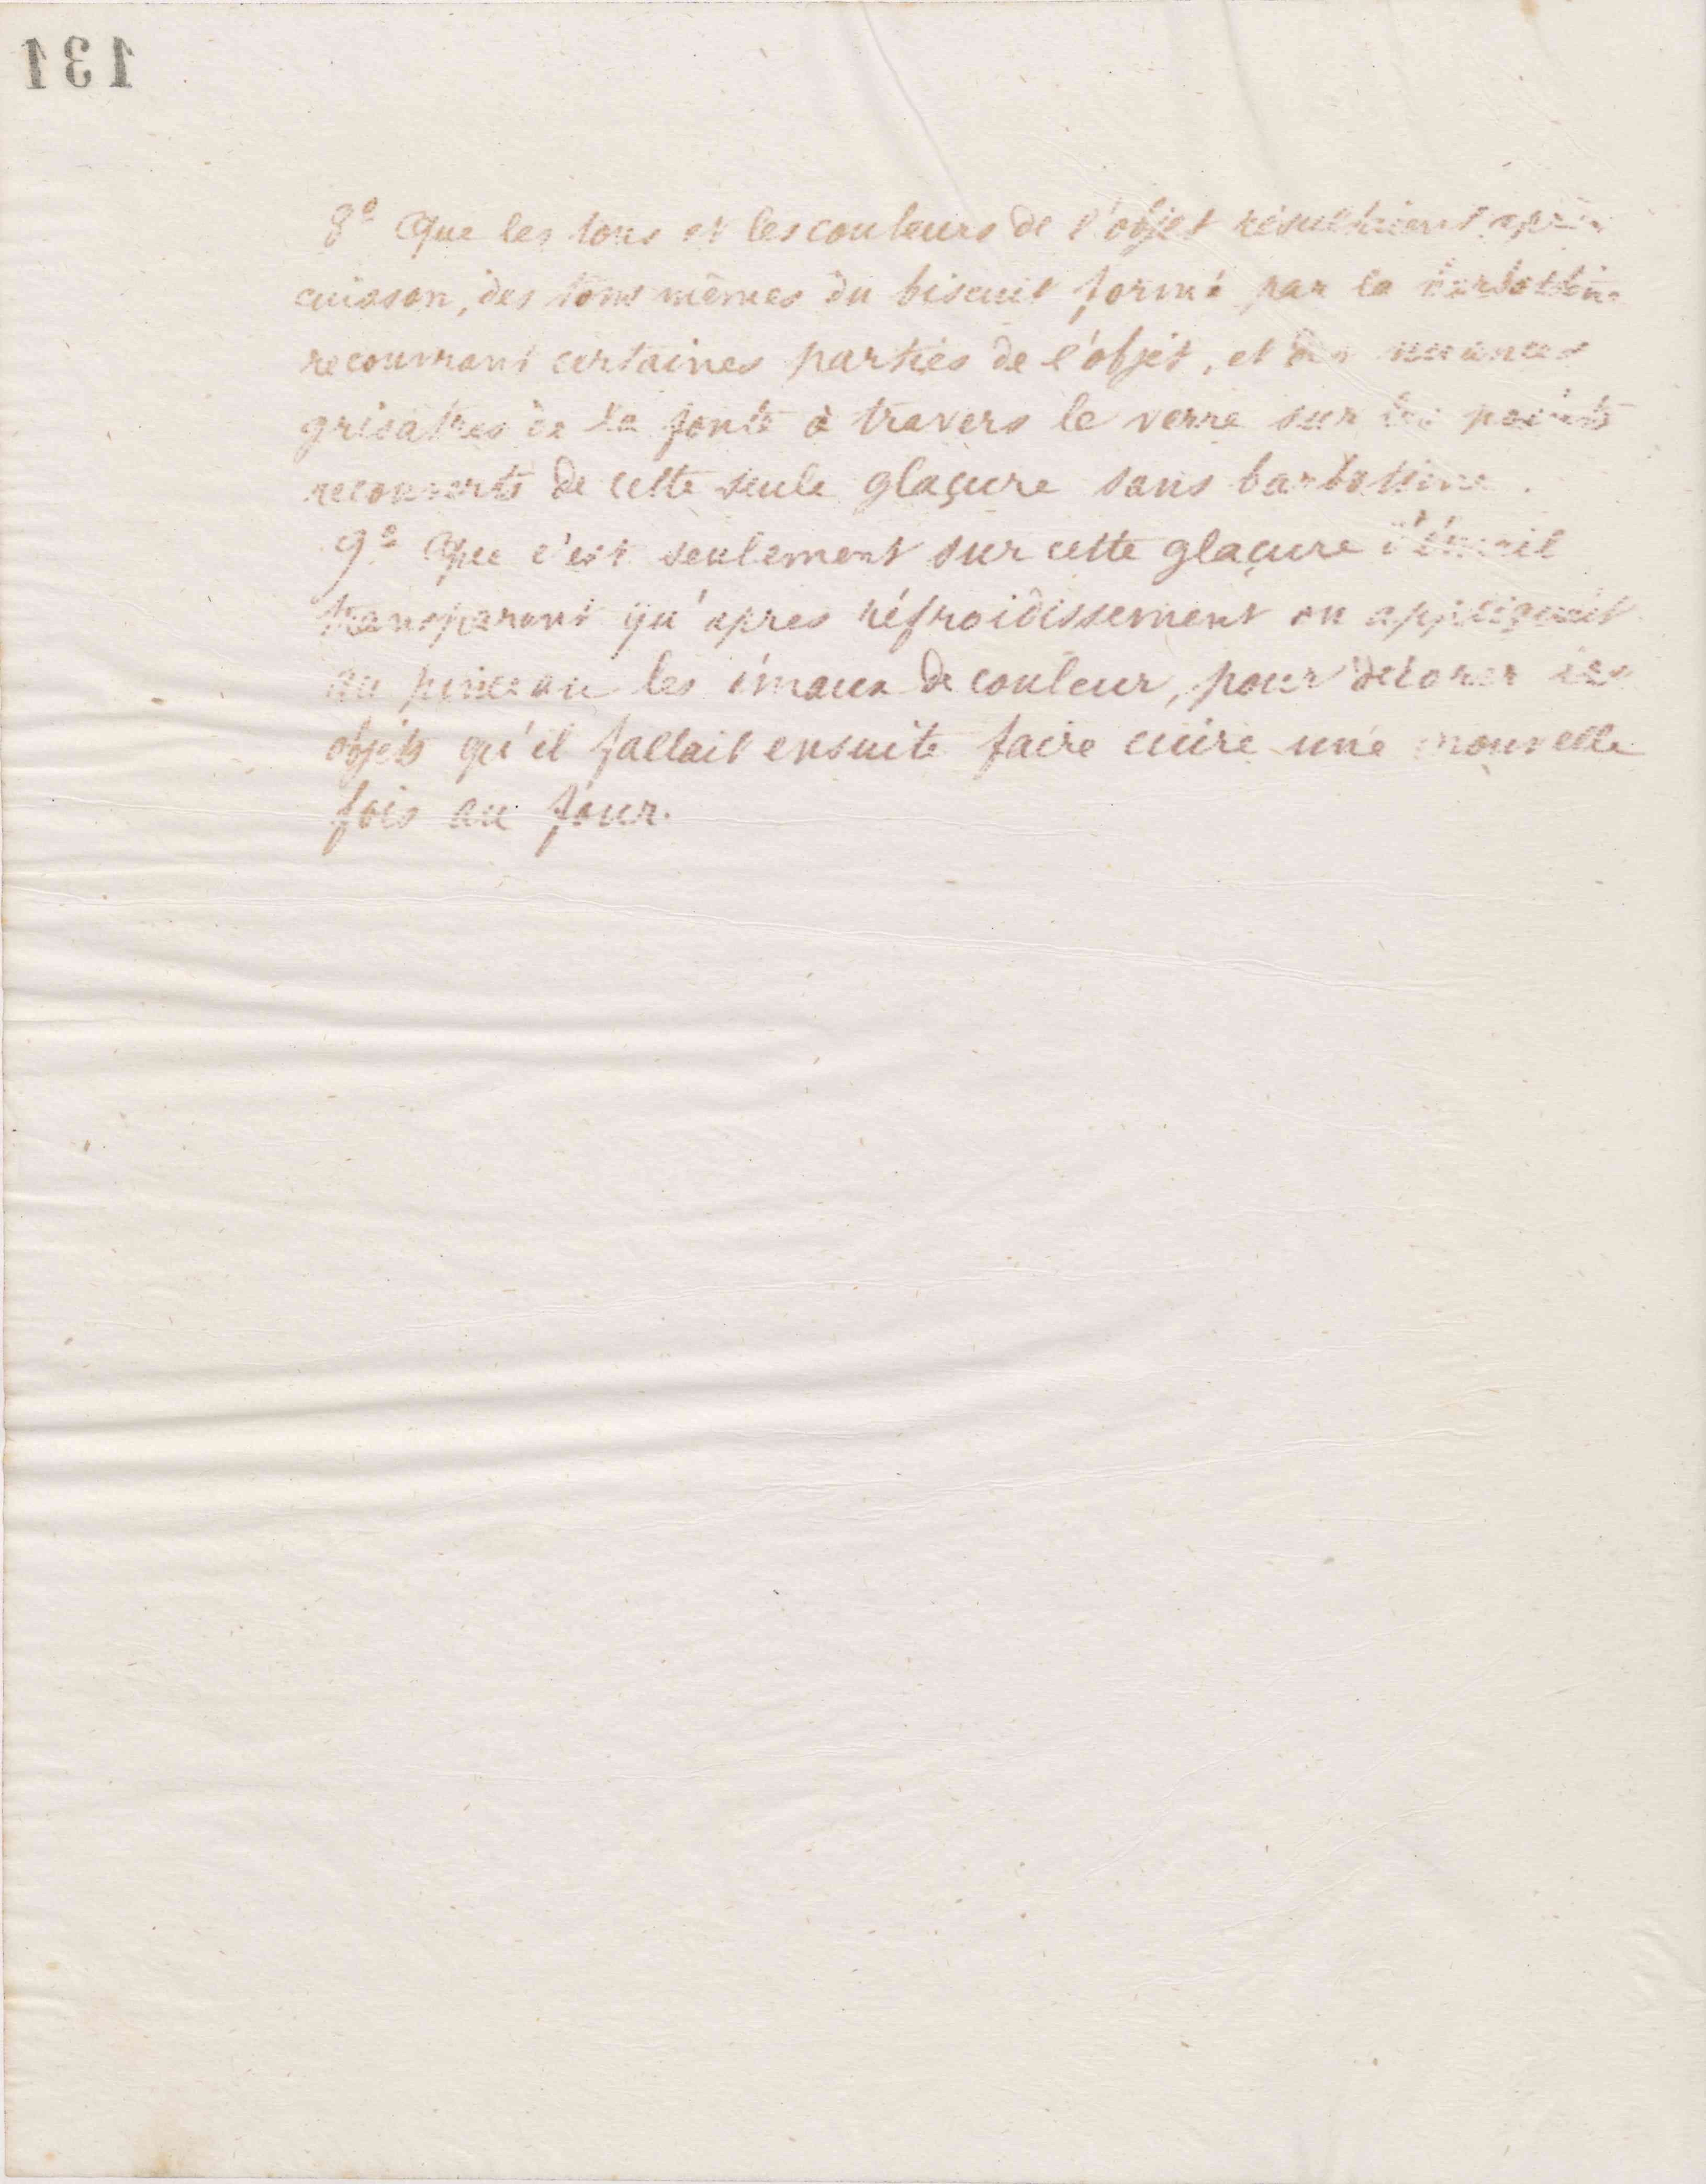 131
8º Que les tons et les couleurs de l'objet résultaient après
cuisson, des tons mêmes du biscuit formé par la barbottine
recouvrant certaines parties de l'objet, et des nuances
grisatres de la fonte à travers le verre sur les points
recouverts de cette seule glaçure sans barbottine.
9º Que c'est seulement sur cette glaçure d'émail
transparent qu'apres réfroidissement on appliquait
au pinceau les émaux de couleur, pour décorer les
objets qu'il fallait ensuite faire cuire une nouvelle
fois au four.